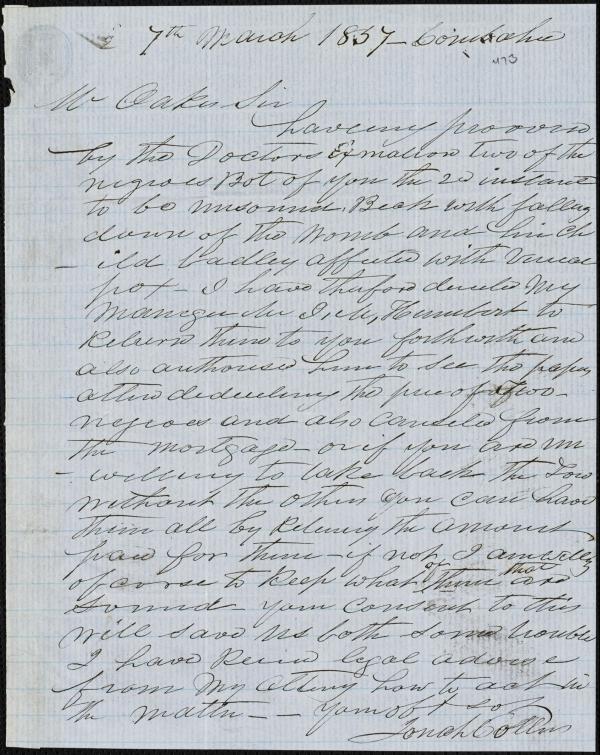 7th March 1857 - Combahee
1173
Mr Oakes Sir
haveing prooven
by the Doctors Exmation two of the
negroes Bot of you the 20 instant
to be unsound. Beck with falling
down of the womb and hir Ch
- ild badley affected with
pox - I have thefore derected My
Maneger Mr Humbert to
Return them to you forthwith and
also authorised him to see the papers
alterd deducting the price of two
negroes and also canceled from
the mortgage - or if you are un
- willing to take back the Two
without the others you can have
them all by Retuning the amount
paid for them - if not I am willing
of corse to Keep what of them that are
Sound - your consent to this
will save us both some trouble
I have Recivd legal advise
from My attorny how to act in
the matter - - your obt Sot
Jonah Collins